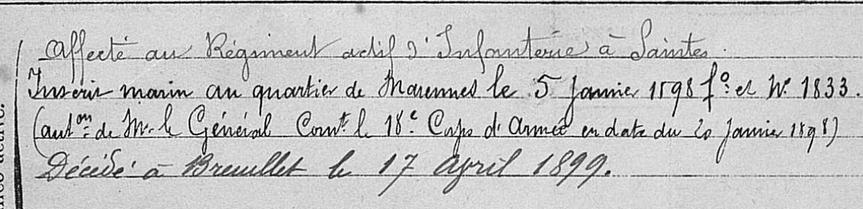 Affecté au Régiment actif d'Infanterie à Saintes.
Inscrit marin au quartier de Marennes le 5 Janvier 1898 fo et No 1833.
(auton de Mr le Général Comt le 18e Corps d'Armée en date du 20 Janvier 1898)
Décédé à Breuillet le 17 April 1899.